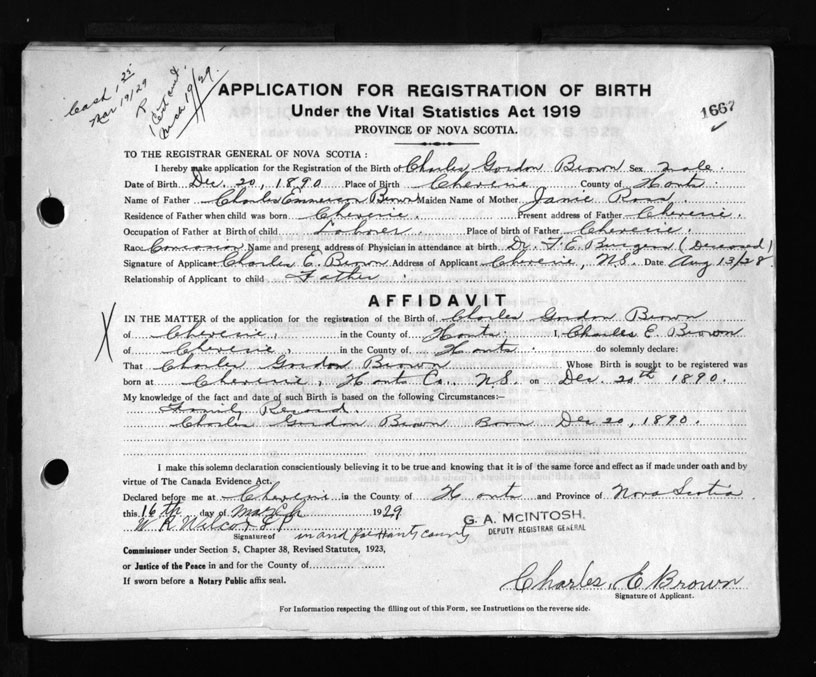 Cash 1.25
Mar 19/29
R
1 Cert
March 19/29
1667
APPLICATION FOR REGISTRATION OF BIRTH
Under the Vital Statistics Act 1919
PROVINCE OF NOVA SCOTIA.
TO THE REGISTRAR GENERAL OF NOVA SCOTIA:
I hereby make application for the Registration of the Birth of Charles Gordon Brown Sex male.
Date of Birth Dec. 20, 1890 Place of Birth Cheverie County of Hants.
Name of Father Charles Emmerson Brown Maiden Name of Mother Janie Ross.
Residence of Father when child was born Cheverie. Present address of Father Cheverie.
Occupation of Father at Birth of child Labrer. Place of birth of Father Cheverie.
Race Name and present address of Physician in attendance at birth Dr. T. E. Burgess (Deceased)
Signature of Applicant Charles E. Brown Address of Applicant Cheverie, N.S. Date Aug 13/28.
Relationship of Applicant to child Father.
AFFIDAVIT
IN THE MATTER of the application for the registration of the Birth of Charles Gordon Brown
of Cheverie, in the County of Hants. I, Charles E. Brown
of Cheverie, in the County of Hants. do solemnly declare:
That Charles Gordon Brown Whose Birth is sought to be registered was
born at Cheverie, Hants Co., N.S. on Dec. 20th 1890.
My knowledge of the fact and date of such Birth is based on the following Circumstances:—
Family Record.
Charles Gordon Brown Born Dec 20, 1890.
I make this solemn declaration conscientiously believing it to be true and knowing that it is of the same force and effect as if made under oath and by
virtue of The Canada Evidence Act.
Declared before me at Cheverie in the County of Hants and Province of Nova Scotia
this 16th day of March 1929
W R Wilcox J P
G. A. McINTOSH,
DEPUTY REGISTRAR GENERAL
Signature of in and for Hants County
Commissioner under Section 5, Chapter 38, Revised Statutes, 1923,
or Justice of the Peace in and for the County of
If sworn before a Notary Public affix seal.
Charles, E Brown
Signature of Applicant.
For Information respecting the filling out of this Form, see Instructions on the reverse side.